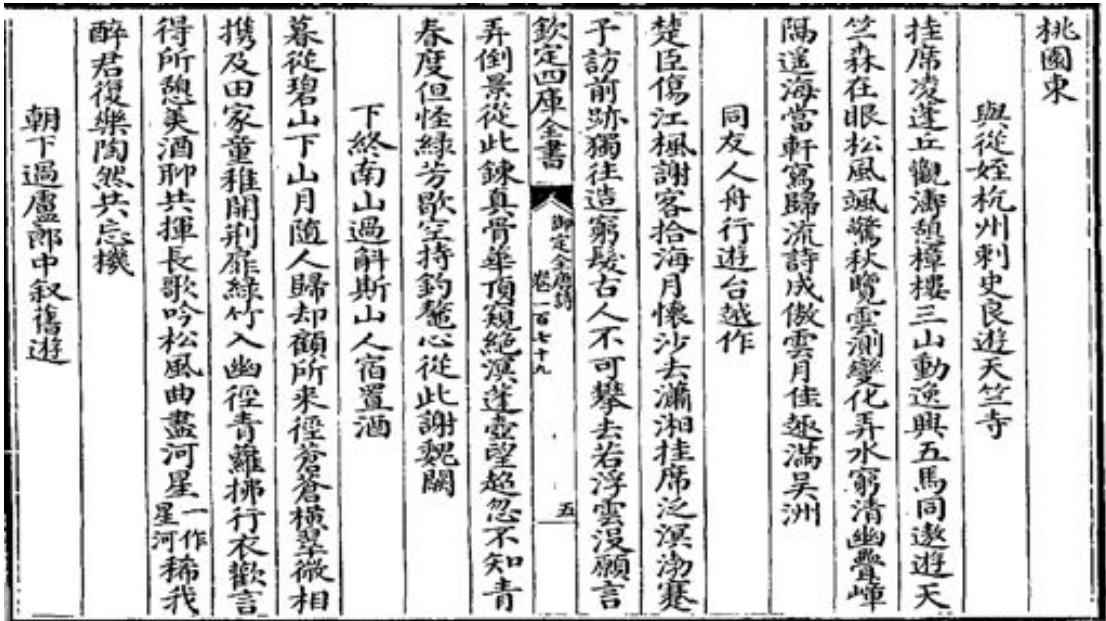 桃園東
與從姪杭州刺史良遊天竺寺
挂席凌蓬丘觀濤憩樟樓三山動逸興五馬同遨遊天
竺森在眼松風颯驚秋覽雲測變化弄水窮清幽疊嶂
隔遥海當軒寫歸流詩成傲雲月佳趣滿吴洲
同友人舟行遊台越作
楚臣傷江楓謝客拾海月懷沙去瀟湘挂席泛溟渤蹇
予訪前跡獨往造窮髮古人不可攀去若浮雲没願言
欽定四庫全書
御定全唐詩
卷一百七十九
五
弄倒景從此鍊真骨華頂窺絶溟蓬壺望超忽不知青
春度但怪緑芳歇空持釣鰲心從此謝魏闕
下終南山過斛斯山人宿置酒
暮從碧山下山月隨人歸却顧所來徑蒼蒼橫翠微相
携及田家童稚開荆扉緑竹入幽徑青蘿拂行衣歡言
得所憩美酒聊共揮長歌吟松風曲盡河星一作星河稀我
醉君復樂陶然共忘機
朝下過盧郎中叙舊遊